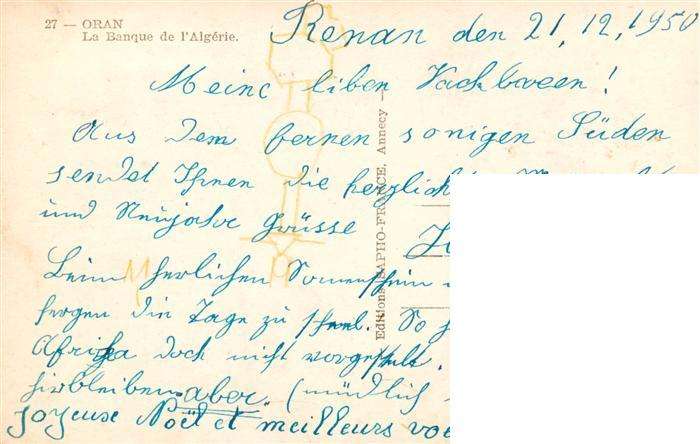 27 — ORAN
La Banque de l'Algérie.
Renan den 21,12,1950
Meine liben Nachbaren!
Aus dem fernen sonigen Süden
sendet Ihnen die herzlich
und Neujahr Grüsse
Beim herlichen Sonnenschein
fergen die Tage zu schnel. So
Afrika doch nicht vorgestelt.
hirbleiben aber. (mündlich
Joyeuse Noël et meilleurs voe
Editions SAPHO-FRANCE, Annecy